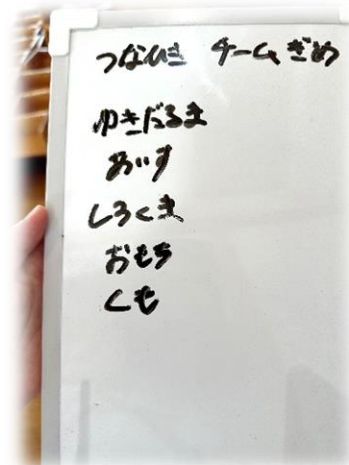 つなひき チームぎめ
ゆきだるま
あいす
しろくま
おもち
くも